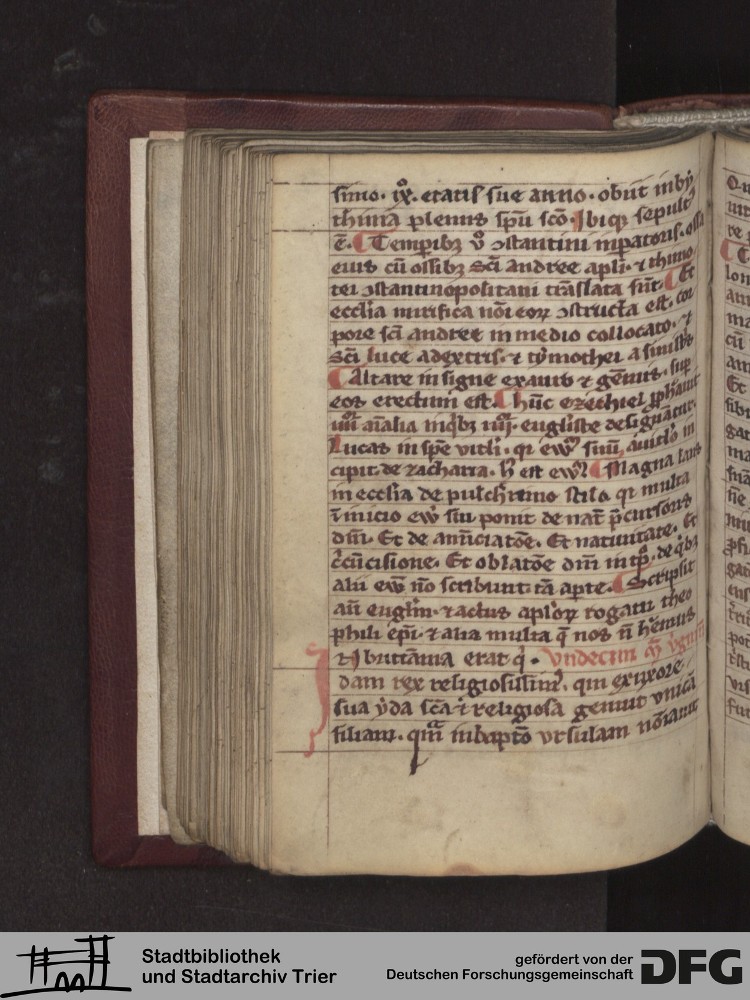 simo. ix. etatis sue anno. obiit in by
thinia plenus spu sco. Ibiq; sepult
e. Tempib; v ↄstantini inpatoris. ossa
eius cu ossib; sci andree apli. ⁊ thimo
tei ↄstantinopolitani traslata sut. Et
ecclia mirifica noi eoꝝ ↄstructa est. cor
pore sci andree in medio collocato. ⁊
sci luce a dextris. ⁊ tymothei a sinistris
Altare insigne ex auro ⁊ gemis. sup
eos erectum est. hunc ezechiel pphauit
aialia in qb; euugliste designatur.
Lucas in spe vituli. qr ewm suu
cipit de zacharia. h est ewl. Magna laus
in ecclia de pulcherrimo stilo qr multa
in inicio ew sui ponit de nat pcursoris
dni. Et de annciatoe. Et natiuitate. Et
ccucisione. Et oblatoe dni in tp. de qb;
alii ew no scribunt ta apte. Scripsit
au euuglim. ⁊ actus aploꝝ rogatu theo
phili epi. ⁊ alia multa q nos n hemus
In brittania erat q. Vndecim m vginu
dam rex religiosissim. qui ex uxore
sua yda sca ⁊ religiosa genuit vnica
filiam. qm in bapto vrsulam noiauit
Stadtbibliothek
und Stadtarchiv Trier
gefördert von der
Deutschen Forschungsgemeinschaft
DFG